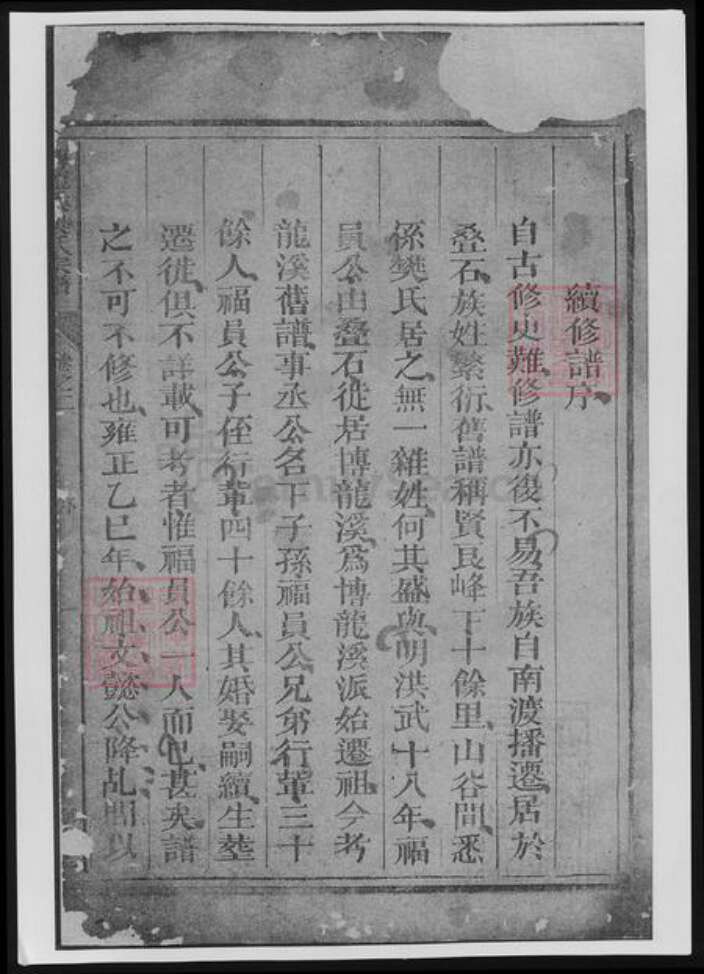 續修譜序
自古修史難修譜亦復不易吾族自南渡播遷居於
叠石族姓繁衍舊譜稱賢良峰下十餘里山谷間悉
係樊氏居之無一雜姓何其盛與明洪武十八年福
員公由叠石徙居博龍溪爲博龍溪派始遷祖今考
龍溪舊譜事丞公名下子孫福員公兄弟行輩三十
餘人福員公子侄行輩四十餘人其婚娶嗣續生塟
遷徙俱不詳載可考者惟福員公一人而已甚矣譜
之不可不修也雍正乙巳年始祖文懿公降乩明以